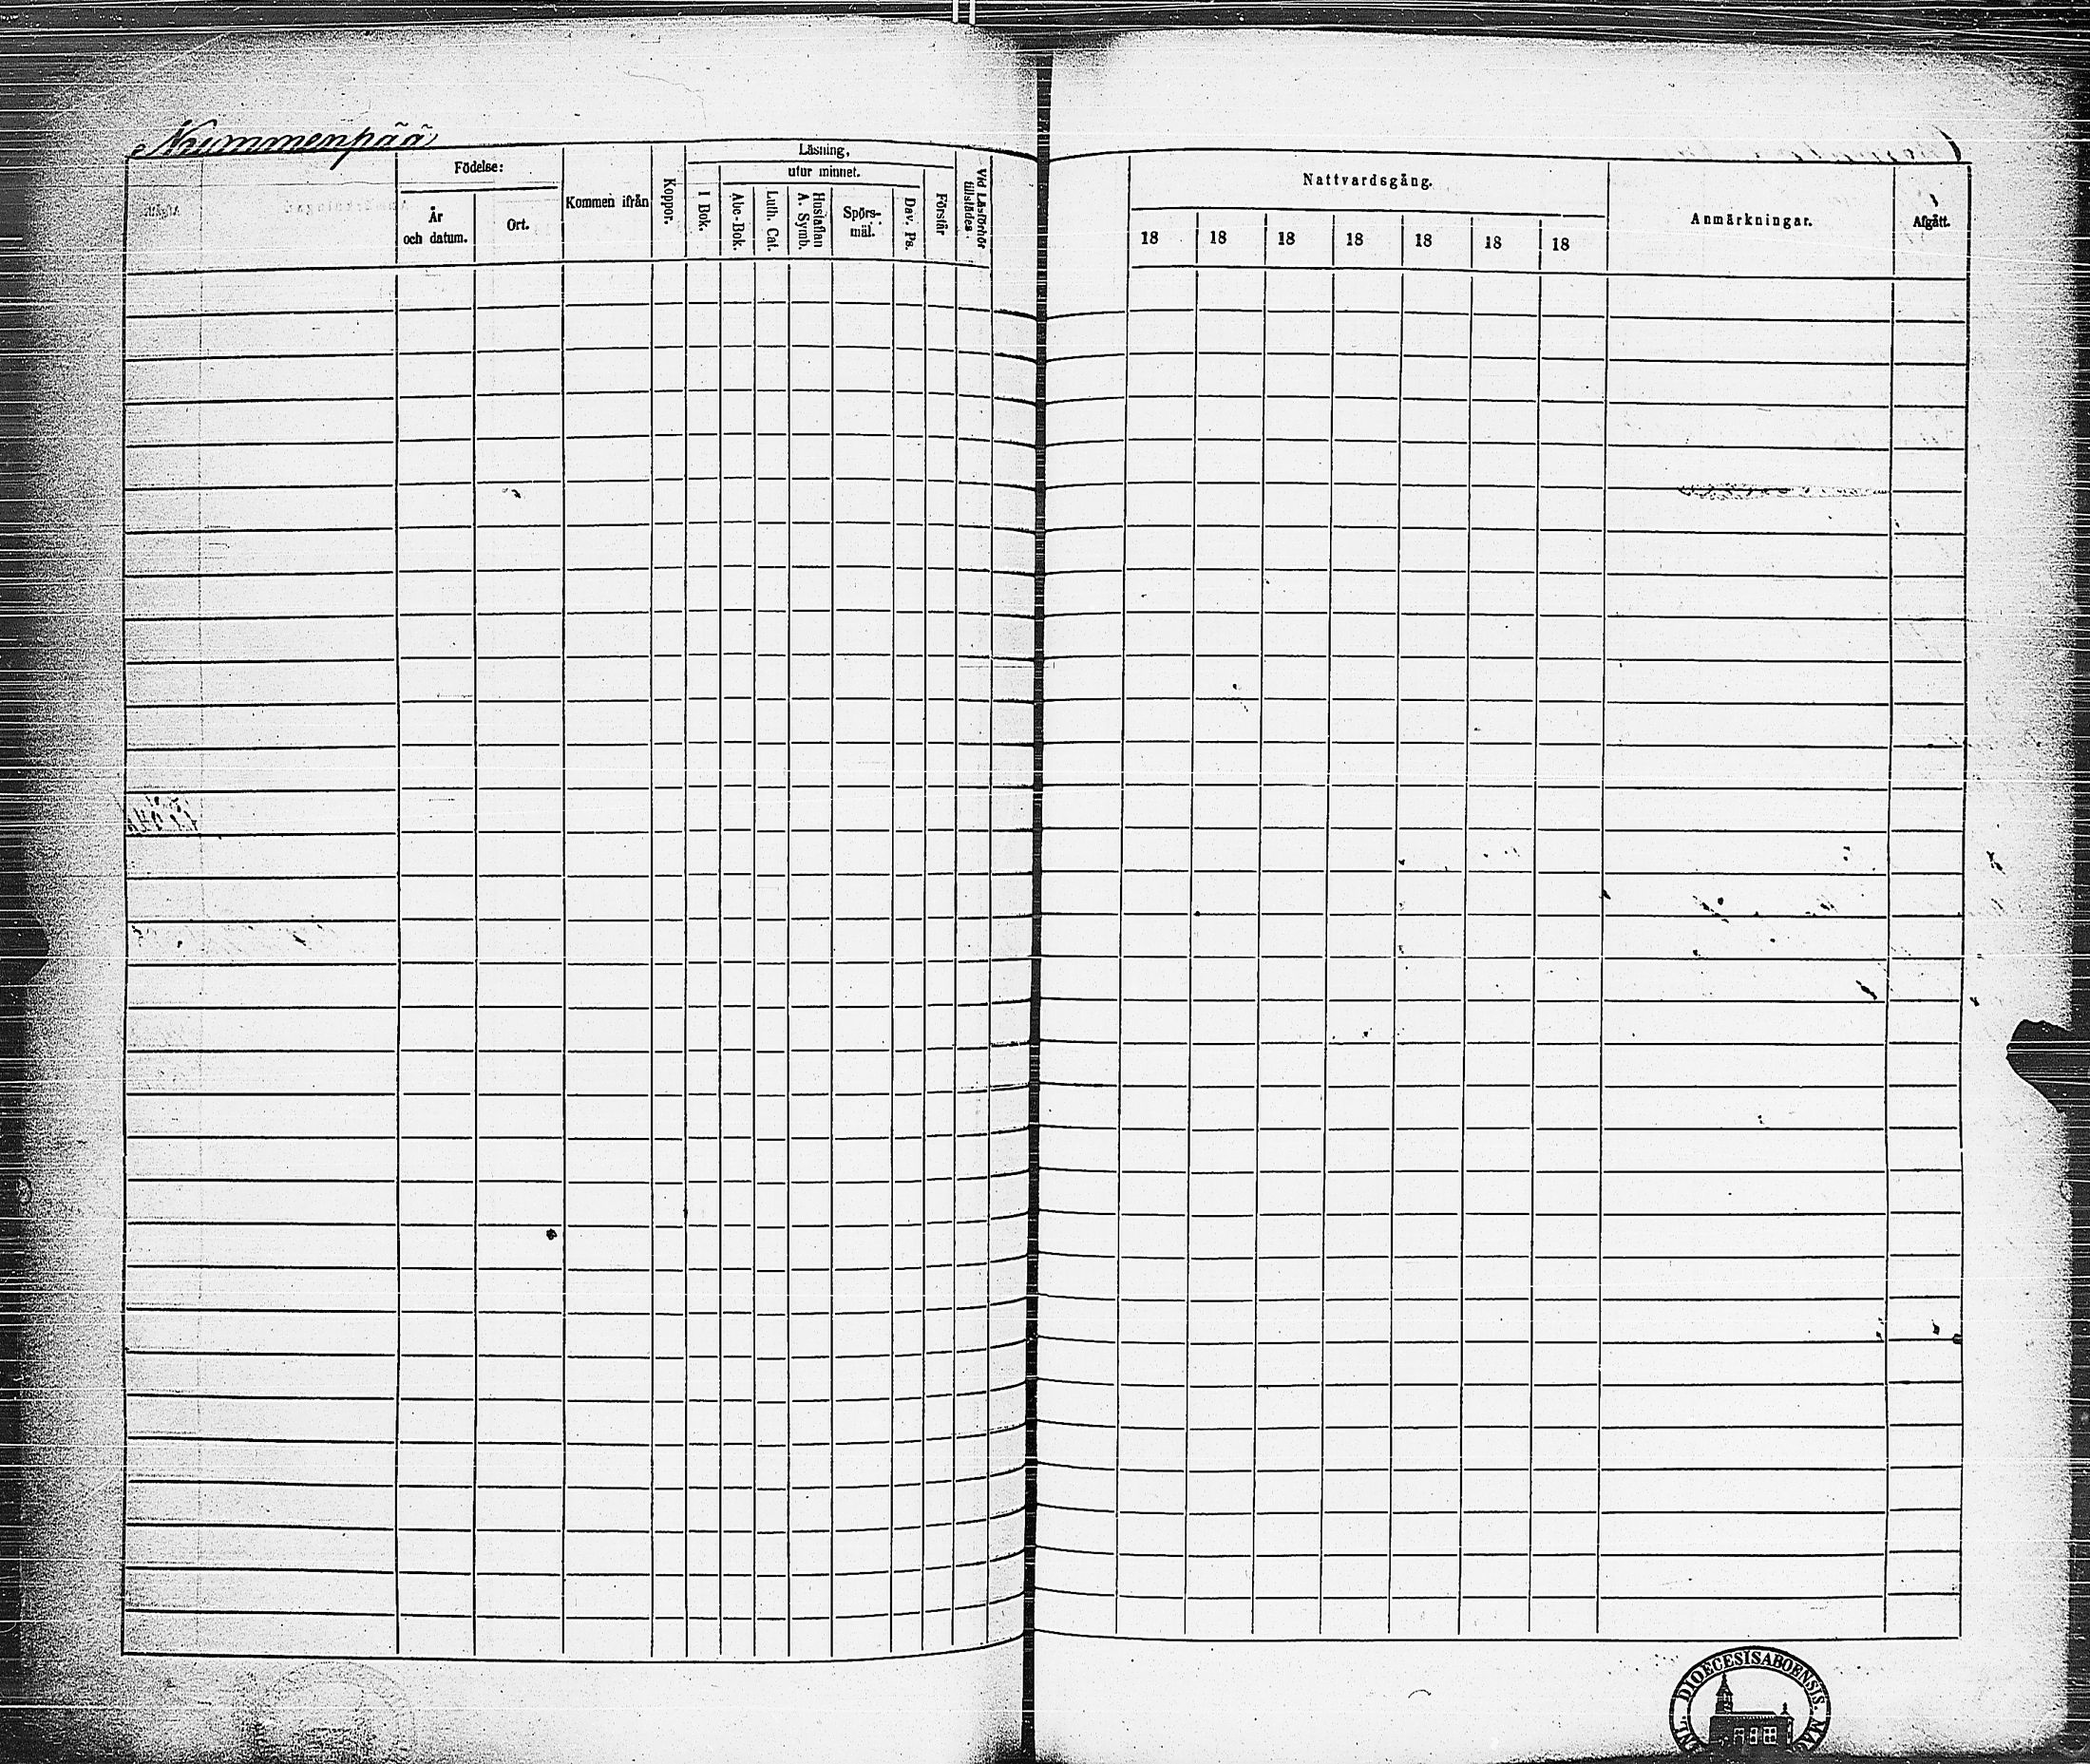 Nummenpää
Födelse:
År
och datum.
Ort.
Kommen ifrån
Koppor.
Läsning,
utur minnet.
I Bok.
Abc-Bok.
Luth. Cat.
Hustaflan
A. Symb.
Spörs-
mål.
Dav. Ps.
Förstår
Vid Läsförhör
tillstädes.
Nattvardsgång.
18 18 18 18 18 18 18
Anmärkningar.
Afgått.
DIOECESIS ABOENSIS